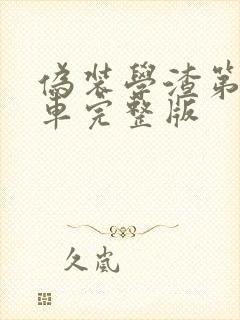 偽装學渣第
車完整版
久嵐